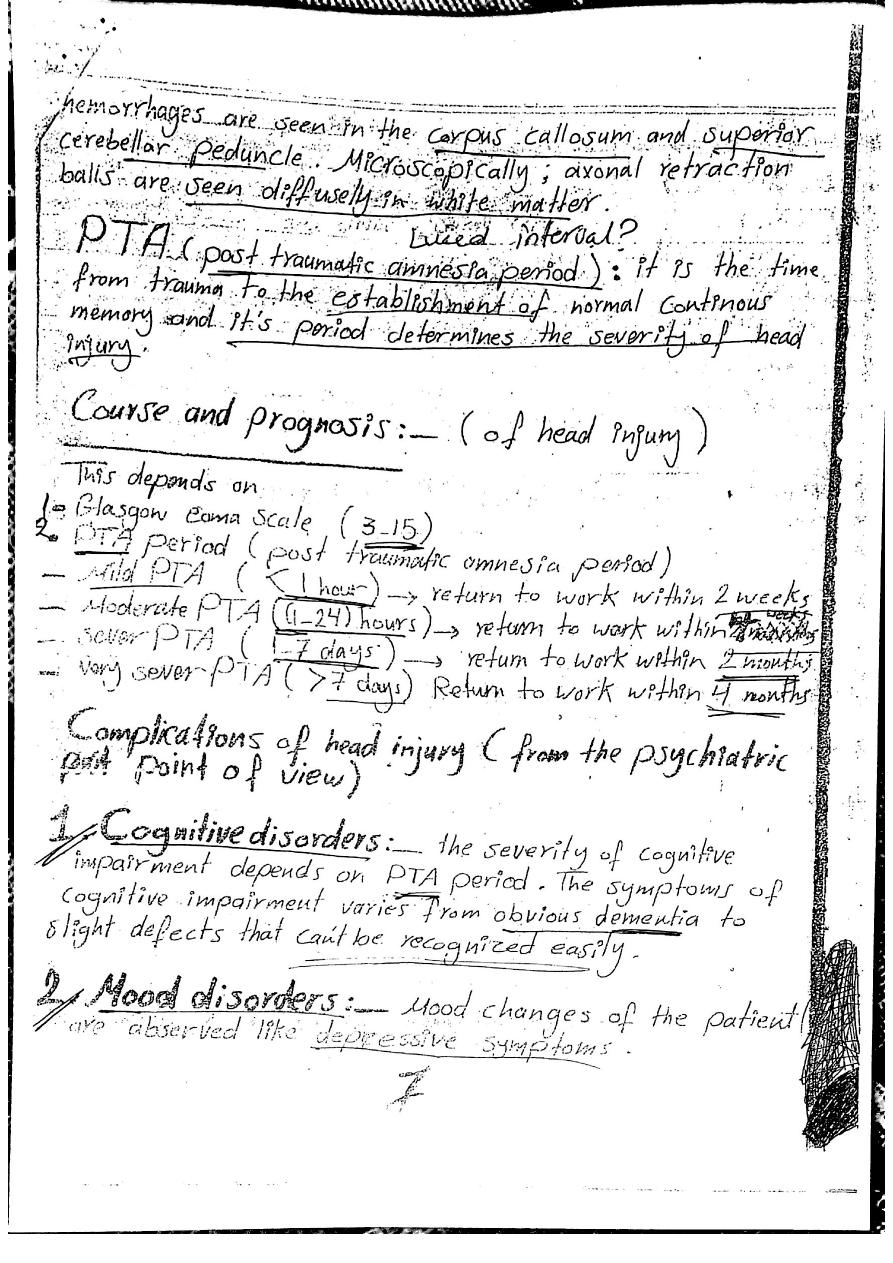 hemorrhages are seen in the corpus callosum and superior
cerebellar peduncle. Microscopically; axonal retraction
balls are seen diffusely in white matter.
Lucid interval?
PTA (post traumatic amnesia period): it is the time
from trauma to the establishment of normal continous
memory and it's period determines the severity of head
injury.
Course and prognosis:- (of head injury)
This depends on
1- Glasgow coma scale (3-15)
2. PTA period (post traumatic amnesia period)
- Mild PTA (<1 hour) → return to work within 2 weeks
- Moderate PTA ((1-24) hours) → return to work within
- sever PTA (1-7 days) → return to work within 2 months
- very sever PTA (>7 days) Return to work within 4 months
Complications of head injury (from the psychiatric
point of view)
1. Cognitive disorders:- the severity of cognitive
impairment depends on PTA period. The symptoms of
cognitive impairment varies from obvious dementia to
slight defects that can't be recognized easily.
2. Mood disorders:- Mood changes of the patient
are observed like depressive symptoms.
7